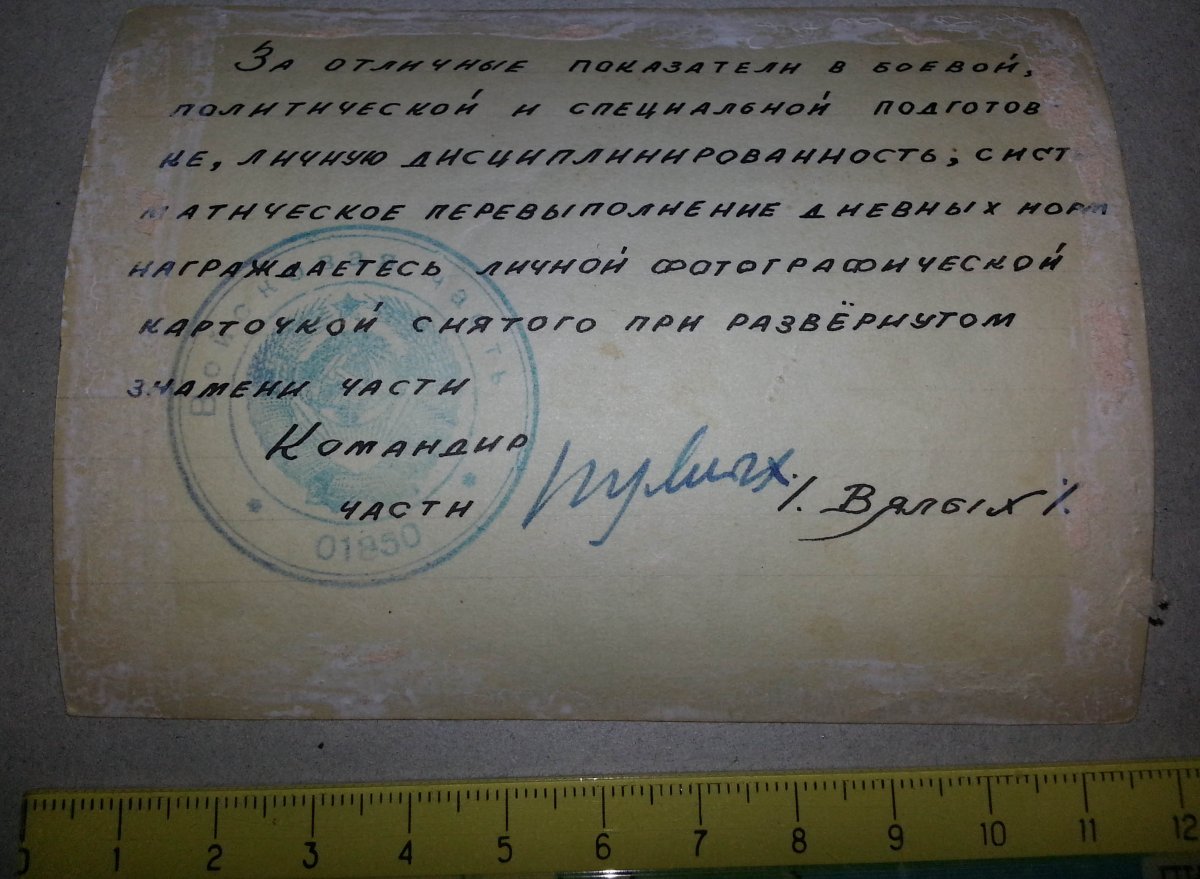 За отличные показатели в боевой,
политической и специальной подготов-
ке, личную дисциплинированность, систе
матическое перевыполнение дневных норм
награждаетесь личной фотографической
карточкой снятого при развёрнутом
знамени части
Командир
части
/. Вялых /.
Войсковая часть
01850
0 1 2 3 4 5 6 7 8 9 10 11 12